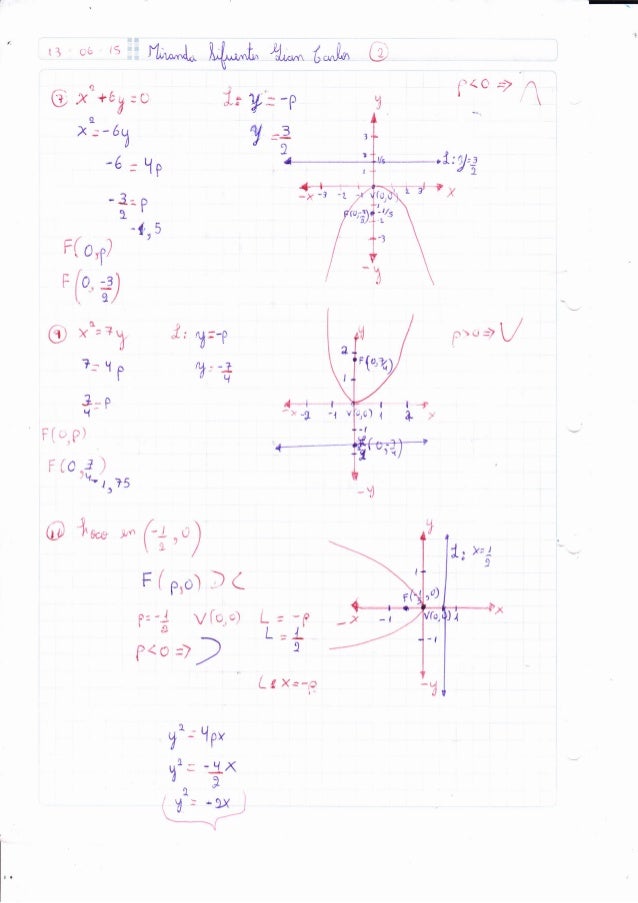 13 · 06 · 15 Miranda Sifuentes Gian Carlos ②
⑦ x² + 6y = 0
x² = -6y
-6 = 4p
-3/2 = p
-1,5
F(0,p)
F(0, -3/2)
L: y = -p
y = 3/2
p<0 ⇒ ∩
y
3
2
1
L: y = 3/2
-x -3 -2 -1 V(0,0) 2 3 x
F(0,-3/2)
-2
-3
-y
⑨ x² = 7y
7 = 4p
7/4 = p
F(0,p)
F(0, 7/4)
1,75
L: y = -p
y = -7/4
p>0 ⇒ ∪
y
2
F(0,7/4)
1
-x -2 -1 V(0,0) 1 2 x
-1
(0,-7/4)
-y
⑪ foco en (-1/2, 0)
F(p,0) ⊃ ⊂
p = -1/2 V(0,0) L = -p
L = 1/2
p<0 ⇒ ⊃
L: x = -p
y² = 4px
y² = -4/2 x
y² = -2x
y
L: x = 1/2
1
F(-1/2,0)
-x -1 V(0,0) 1 x
-1
-y